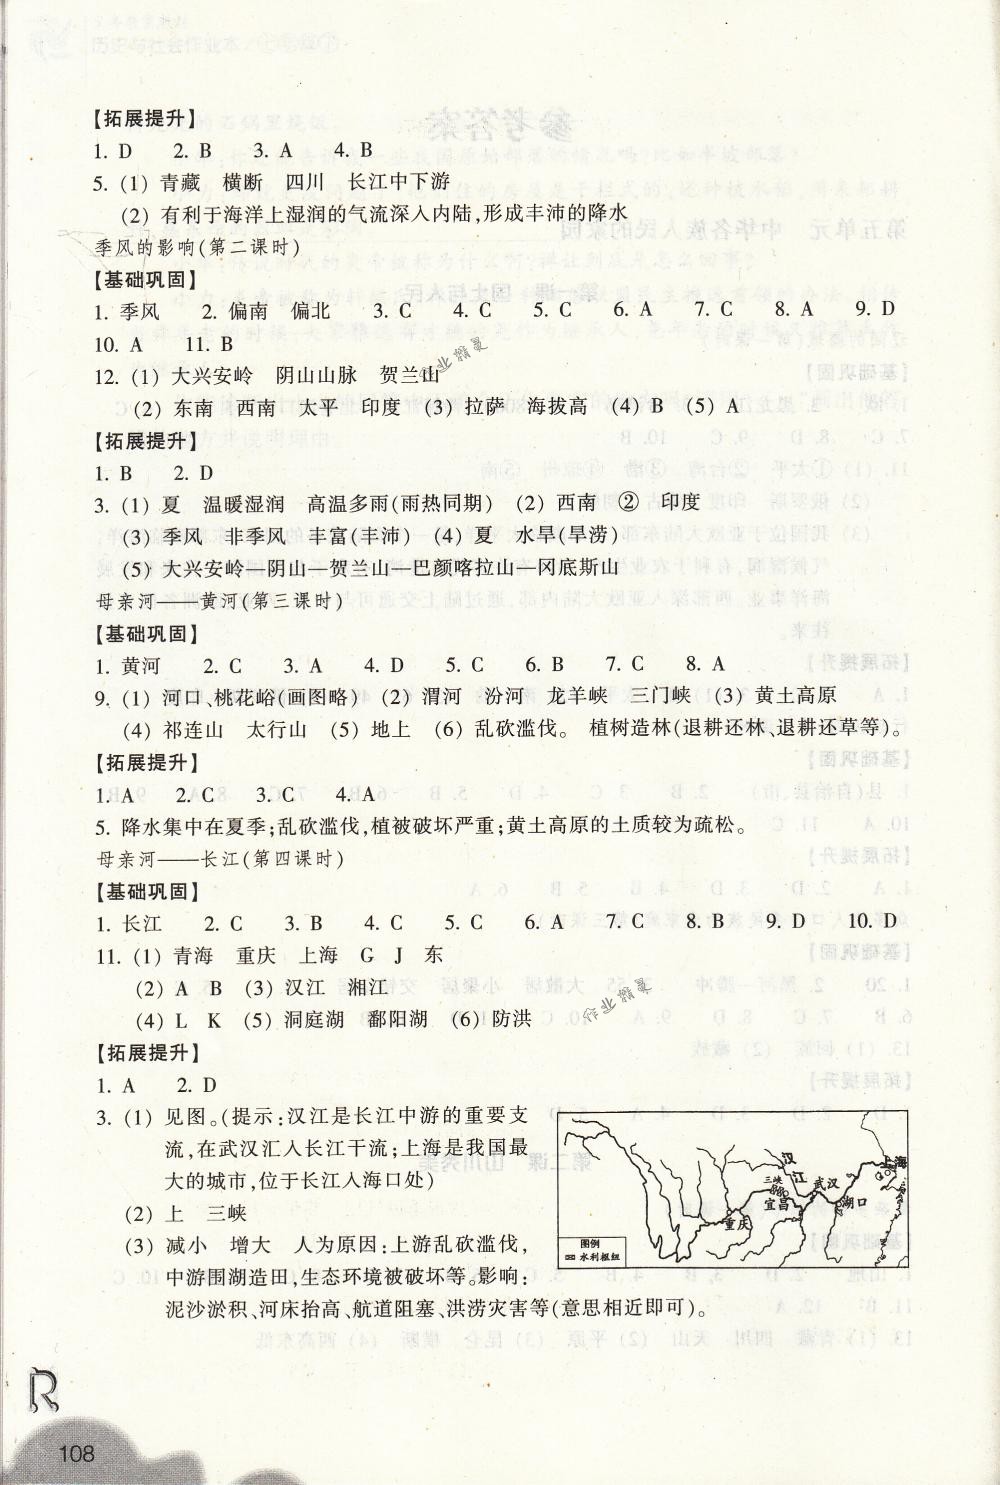 【拓展提升】
1. D 2. B 3. A 4. B
5. (1) 青藏 横断 四川 长江中下游
(2) 有利于海洋上湿润的气流深入内陆,形成丰沛的降水
季风的影响(第二课时)
【基础巩固】
1. 季风 2. 偏南 偏北 3. C 4. C 5. C 6. A 7. C 8. A 9. D
10. A 11. B
12. (1) 大兴安岭 阴山山脉 贺兰山
(2) 东南 西南 太平 印度 (3) 拉萨 海拔高 (4) B (5) A
【拓展提升】
1. B 2. D
3. (1) 夏 温暖湿润 高温多雨(雨热同期) (2) 西南 ② 印度
(3) 季风 非季风 丰富(丰沛) (4) 夏 水旱(旱涝)
(5) 大兴安岭—阴山—贺兰山—巴颜喀拉山—冈底斯山
母亲河——黄河(第三课时)
【基础巩固】
1. 黄河 2. C 3. A 4. D 5. C 6. B 7. C 8. A
9. (1) 河口、桃花峪(画图略) (2) 渭河 汾河 龙羊峡 三门峡 (3) 黄土高原
(4) 祁连山 太行山 (5) 地上 (6) 乱砍滥伐。 植树造林(退耕还林、退耕还草等)。
【拓展提升】
1. A 2. C 3. C 4. A
5. 降水集中在夏季;乱砍滥伐,植被破坏严重;黄土高原的土质较为疏松。
母亲河——长江(第四课时)
【基础巩固】
1. 长江 2. C 3. B 4. C 5. C 6. A 7. C 8. B 9. D 10. D
11. (1) 青海 重庆 上海 G J 东
(2) A B (3) 汉江 湘江
(4) L K (5) 洞庭湖 鄱阳湖 (6) 防洪
【拓展提升】
1. A 2. D
3. (1) 见图。(提示:汉江是长江中游的重要支
流,在武汉汇入长江干流;上海是我国最
大的城市,位于长江入海口处)
(2) 上 三峡
(3) 减小 增大 人为原因:上游乱砍滥伐,
中游围湖造田,生态环境被破坏等。影响:
泥沙淤积、河床抬高、航道阻塞、洪涝灾害等(意思相近即可)。
汉江
上海
三峡
武汉
宜昌
湖口
重庆
图例
水利枢纽
108